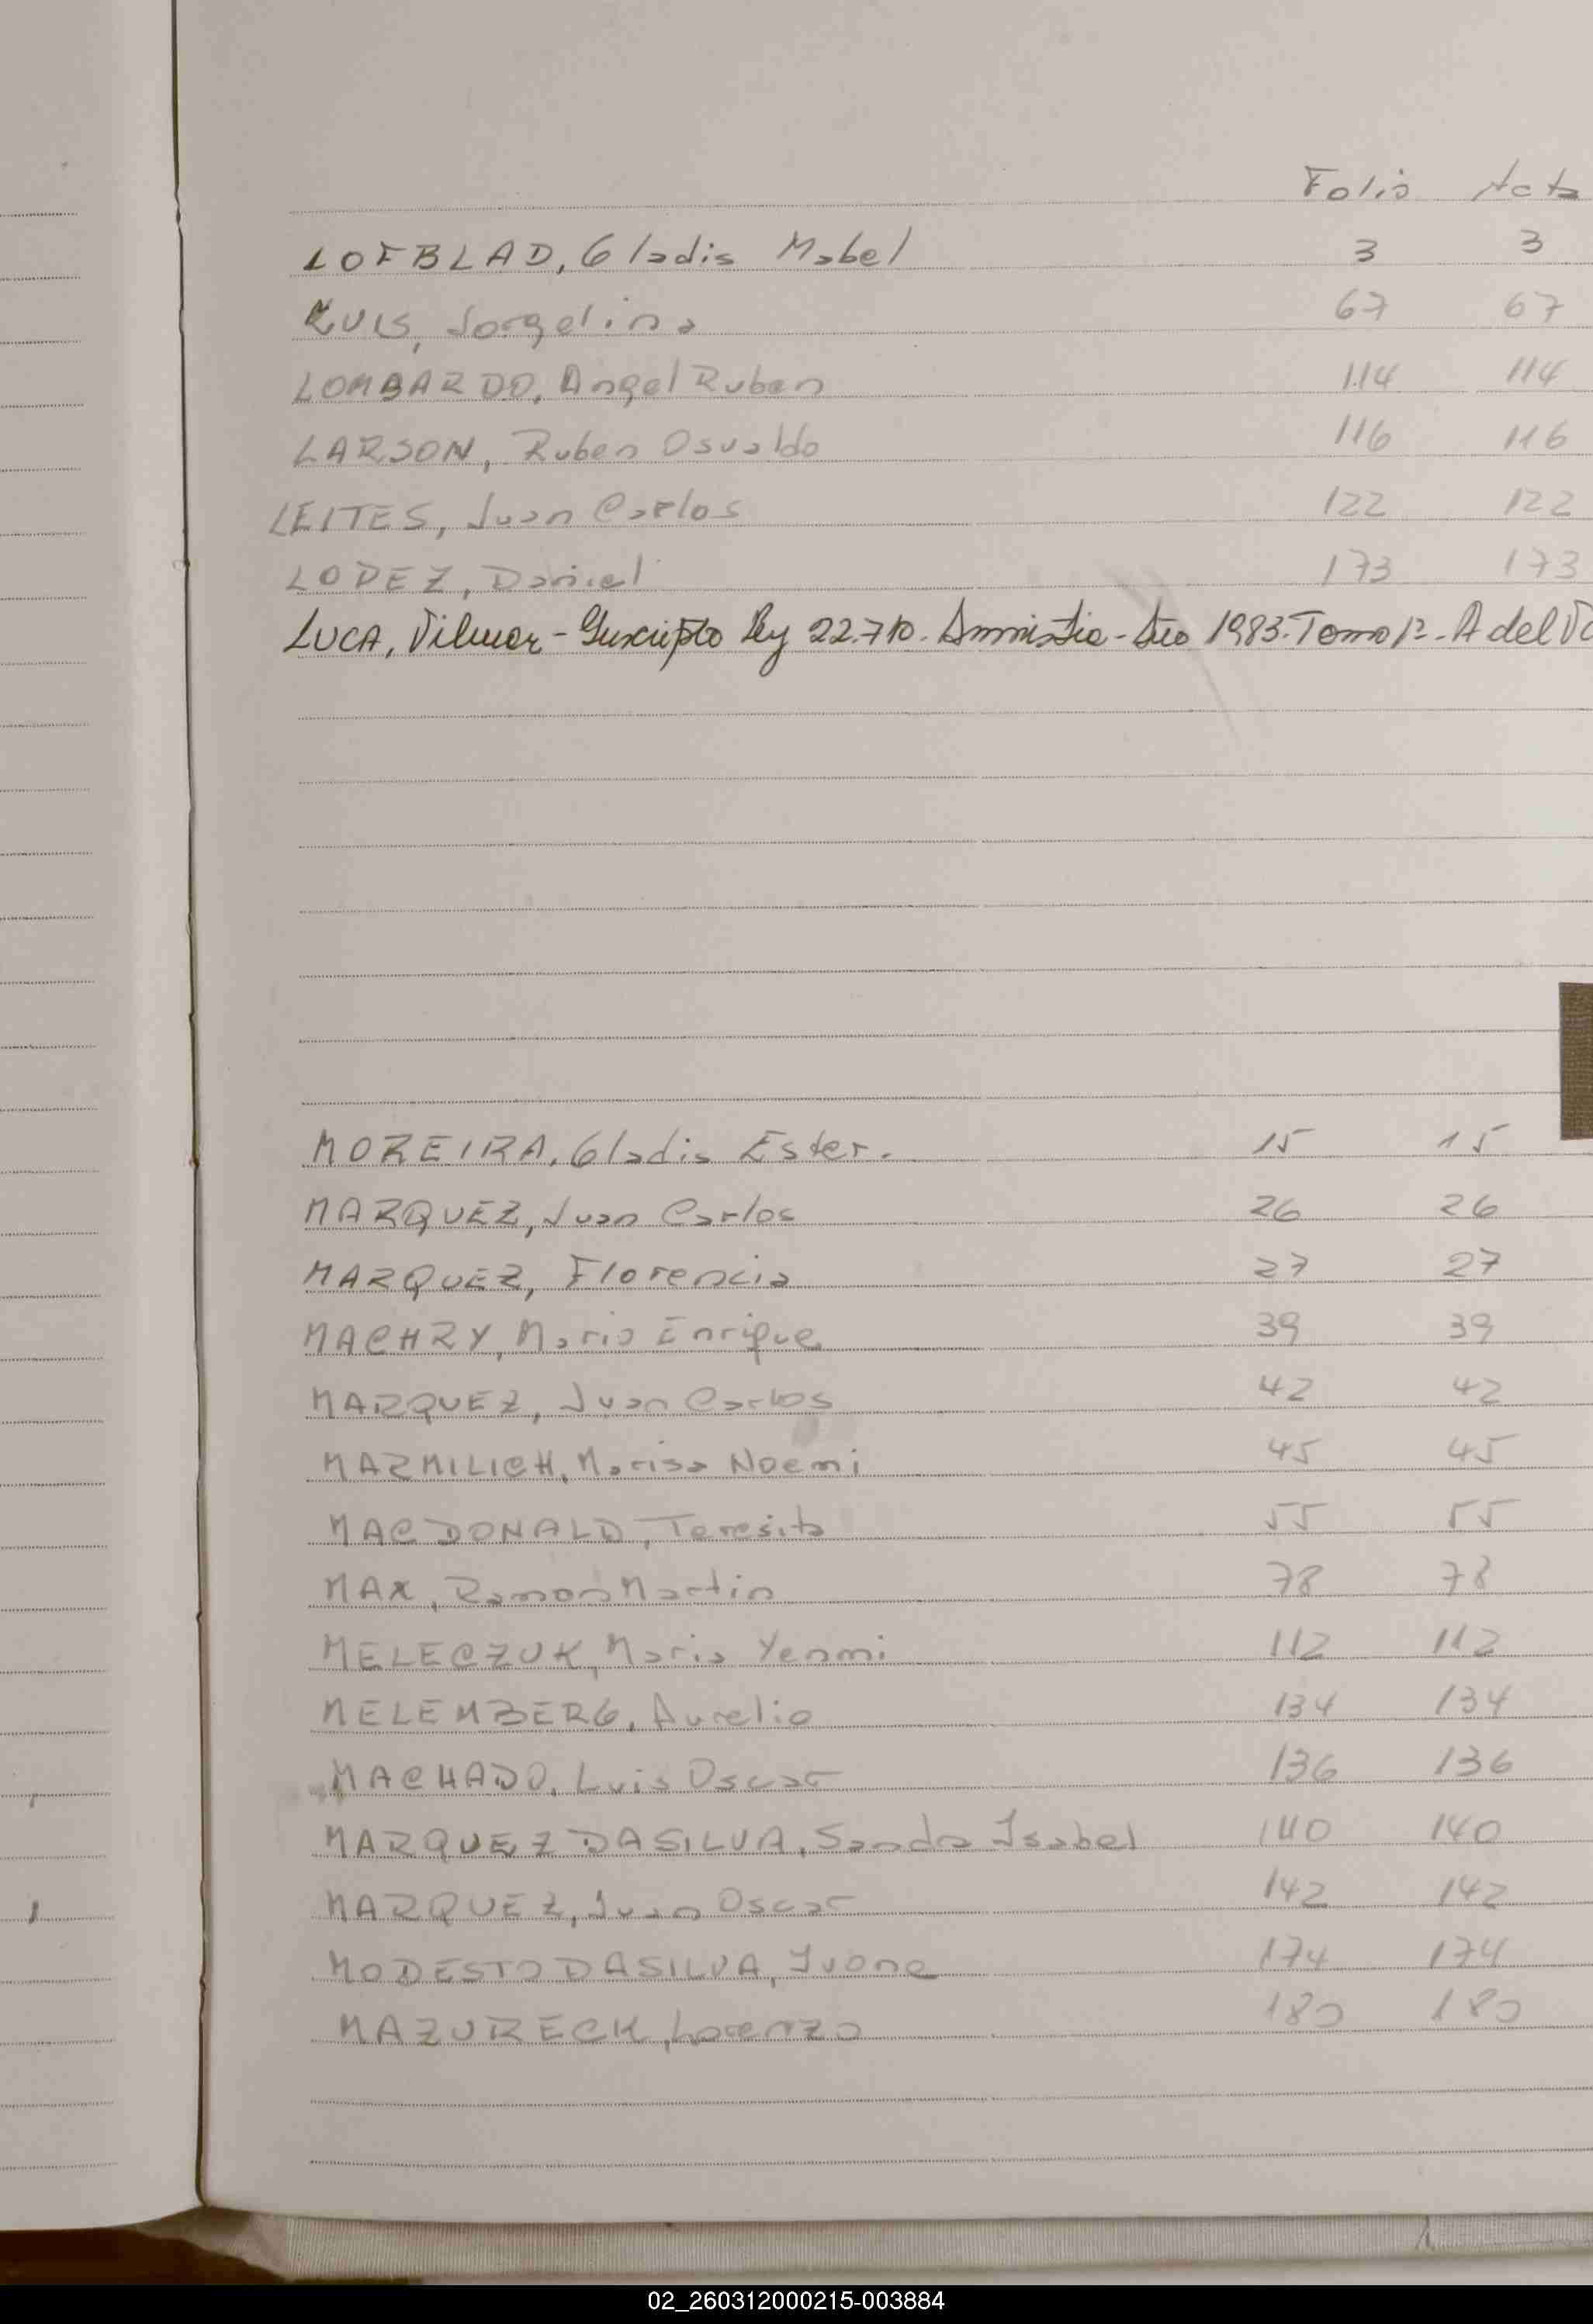 Folio Acta
LOFBLAD, Gladis Mabel 3 3
LUIS, Jorgelina 67 67
LOMBARDO, Angel Ruben 114 114
LARSON, Ruben Osvaldo 116 116
LEITES, Juan Carlos 122 122
LOPEZ, Daniel 173 173
LUCA, Vilmar - Inscripto Ley 22.710. Amnistia - Año 1983. Tomo 1º - A del
MOREIRA, Gladis Ester. 15 15
MARQUEZ, Juan Carlos 26 26
MARQUEZ, Florencia 27 27
MACHRY, Mario Enrique 39 39
MARQUEZ, Juan Carlos 42 42
MARMILICH, Marisa Noemi 45 45
MACDONALD, Teresita 55 55
MAX, Ramon Martin 78 78
MELECZUK, Maria Yenmi 112 112
MELEMBERG, Aurelio 134 134
MACHADO, Luis Oscar 136 136
MARQUEZ DASILVA, Sandra Isabel 140 140
MARQUEZ, Juan Oscar 142 142
MODESTO DASILVA, Ivone 174 174
MAZURECK, Lorenzo 180 180
02_260312000215-003884